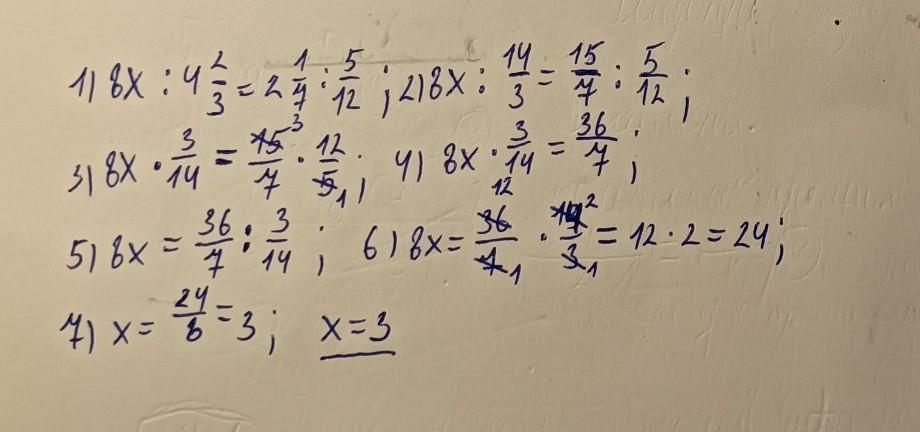 1) 8x : 4 2/3 = 2 1/7 : 5/12 ; 2) 8x : 14/3 = 15/7 : 5/12 ;
3) 8x · 3/14 = 15 3/7 · 12/5 1 ; 4) 8x · 3/14 = 36/7 ;
5) 8x = 36/7 : 3/14 ; 6) 8x = 36 12/7 1 · 14 2/3 1 = 12 · 2 = 24 ;
7) x = 24/8 = 3 ; x = 3